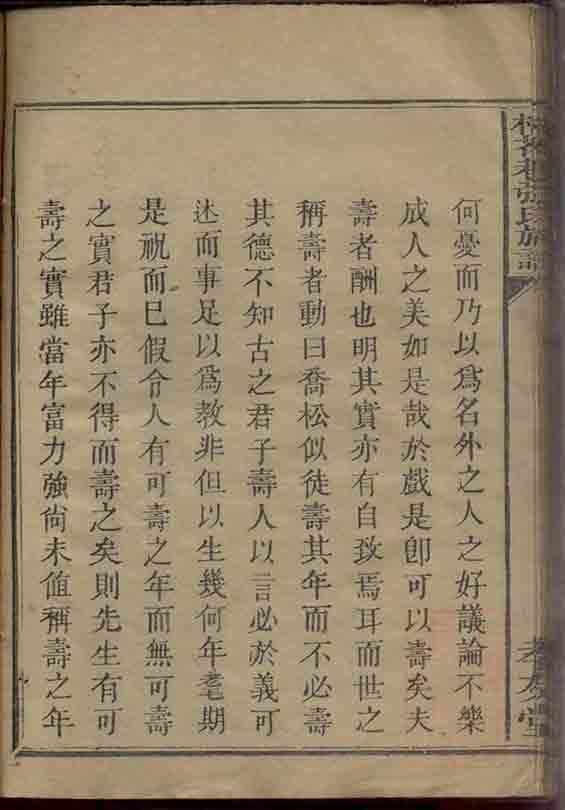 何憂而乃以爲名外之人之好議論不樂
成人之美如是哉於戲是卽可以壽矣夫
壽者酬也明其實亦有自致焉耳而世之
稱壽者動曰喬松似徒壽其年而不必壽
其德不知古之君子壽人以言必於義可
述而事足以爲教非但以生幾何年耄期
是祝而已假令人有可壽之年而無可壽
之實君子亦不得而壽之矣則先生有可
壽之實雖當年富力強尙未值稱壽之年
張氏族譜
孝友堂